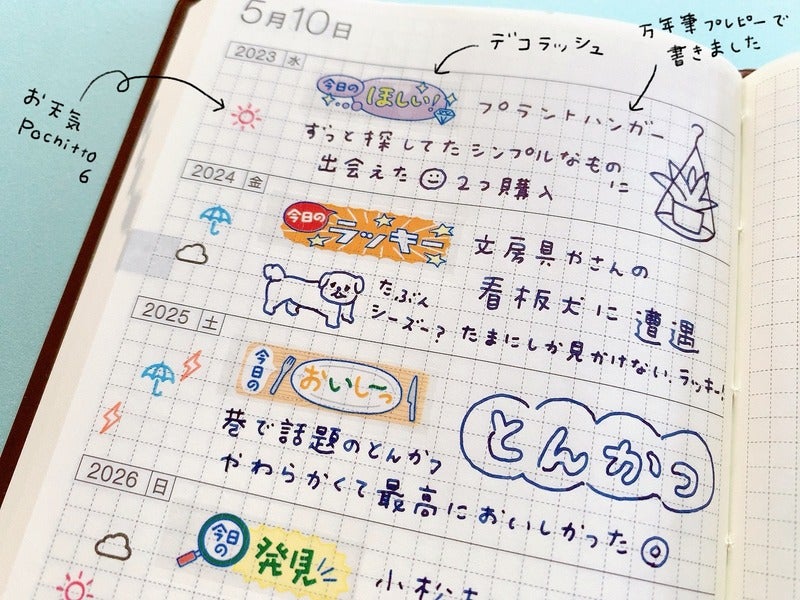 5月10日
デコラッシュ
万年筆プレピーで
書きました
お天気
Pochitto
6
2023 水
今日の
ほしい!
プラントハンガー
ずっと探してたシンプルなものに
出会えた 2つ購入
2024 金
今日の
ラッキー
文房具やさんの
看板犬に遭遇
たぶん
シーズー?
たまにしか見かけない、ラッキー!
2025 土
今日の
おいし〜っ
巷で話題のとんかつ
やわらかくて最高においしかった◎
とんかつ
2026 日
今日の
発見